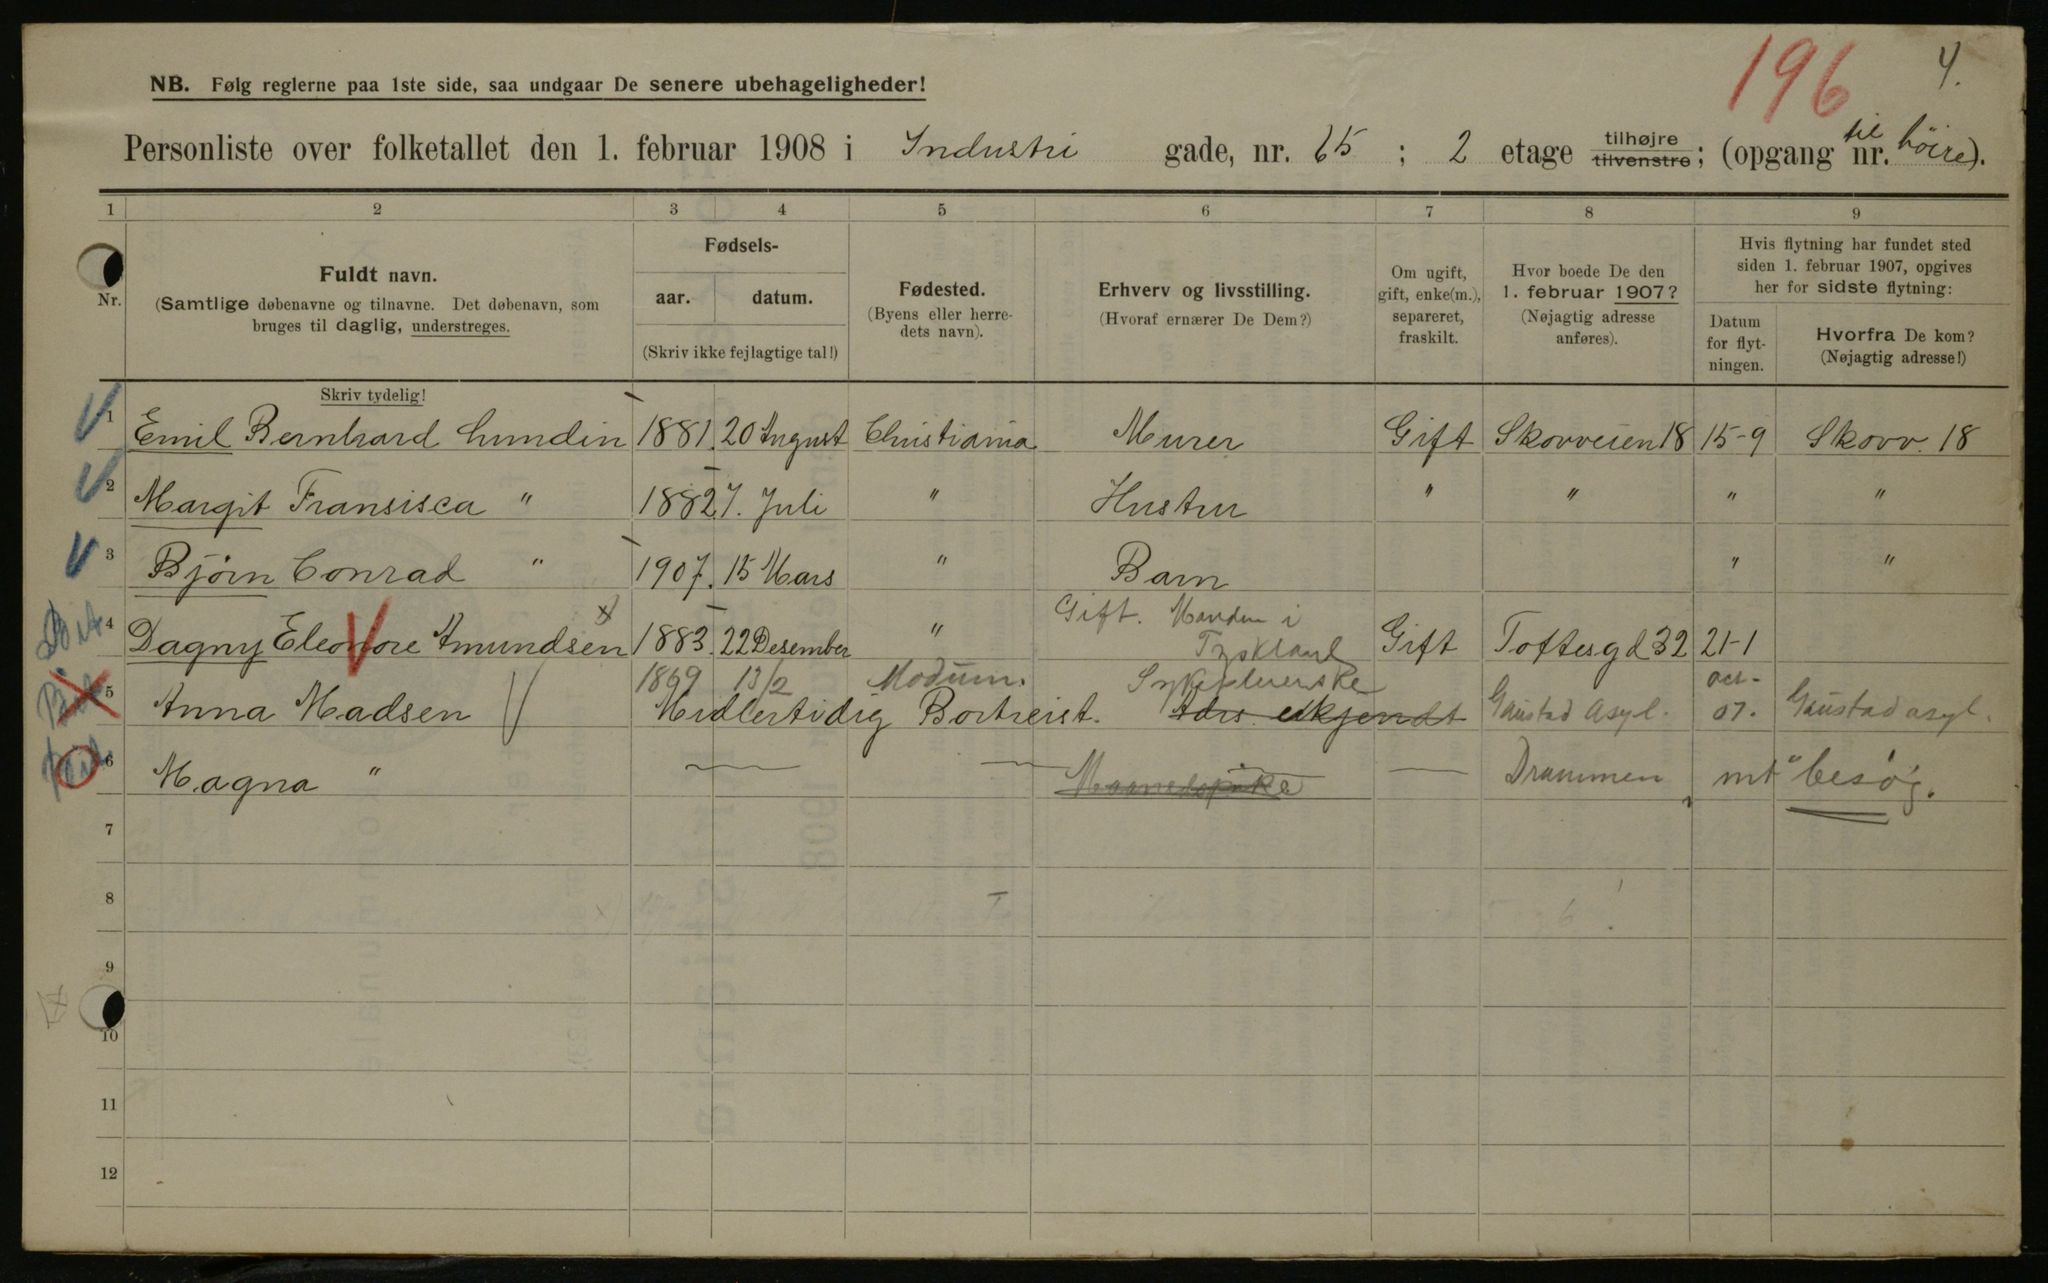 196 4.
NB. Følg reglerne paa 1ste side, saa undgaar De senere ubehageligheder!
Personliste over folketallet den 1. februar 1908 i Industri gade, nr. 65 ; 2 etage tilhøjre tilvenstre ; (opgang nr. til høire).
1 2 3 4 5 6 7 8 9
Nr.
Fuldt navn.
(Samtlige døbenavne og tilnavne. Det døbenavn, som
bruges til daglig, understreges.
Fødsels-
aar. datum.
(Skriv ikke fejlagtige tal!)
Fødested.
(Byens eller herre-
dets navn).
Erhverv og livsstilling.
(Hvoraf ernærer De Dem?)
Om ugift,
gift, enke(m.),
separeret,
fraskilt.
Hvor boede De den
1. februar 1907?
(Nøjagtig adresse
anføres).
Hvis flytning har fundet sted
siden 1. februar 1907, opgives
her for sidste flytning:
Datum
for flyt-
ningen.
Hvorfra De kom?
(Nøjagtig adresse!)
Skriv tydelig!
1 Emil Bernhard Lundin 1881. 20 August Christiania Murer Gift Skovveien 18 15-9 Skovv. 18
2 Margit Fransisca " 1882 7. Juli " Hustru " " " "
3 Bjørn Conrad " 1907. 15 Mars " Barn " "
Gift. Manden i
4 Dagny Eleonore Amundsen 1883. 22 Desember " Tyskland Gift Toftesgd 32 21-1
1869 13/2 Modum. Sykepleierske
5 Anna Madsen Midlertidig Bortreist. Adrs. ukjendt Gaustad Asyl. oct- 07. Gaustad asyl.
6 Magna " Drammen mt besøg.
7
8
9
10
11
12